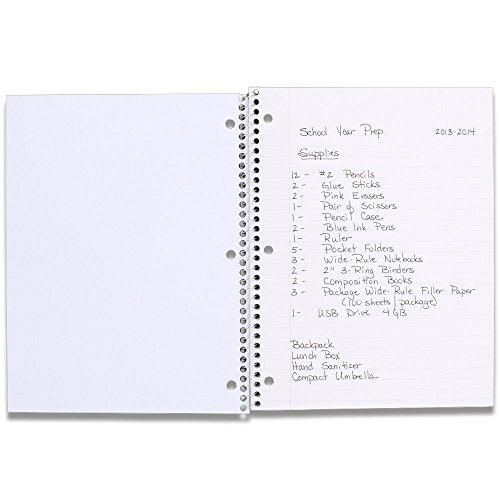 School Year Prep. 2013-2014
Supplies
12 - #2 Pencils
2 - Glue Sticks
2 - Pink Erasers
1 - Pair of Scissors
1 - Pencil Case
2 - Blue Ink Pens
1 - Ruler
5 - Pocket Folders
3 - Wide-Rule Notebooks
2 - 2" 3-Ring Binders
2 - Composition Books
3 - Package Wide-Rule Filler Paper
(100 sheets/package)
1 - USB Drive 4GB
Backpack
Lunch Box
Hand Sanitizer
Compact Umbrella